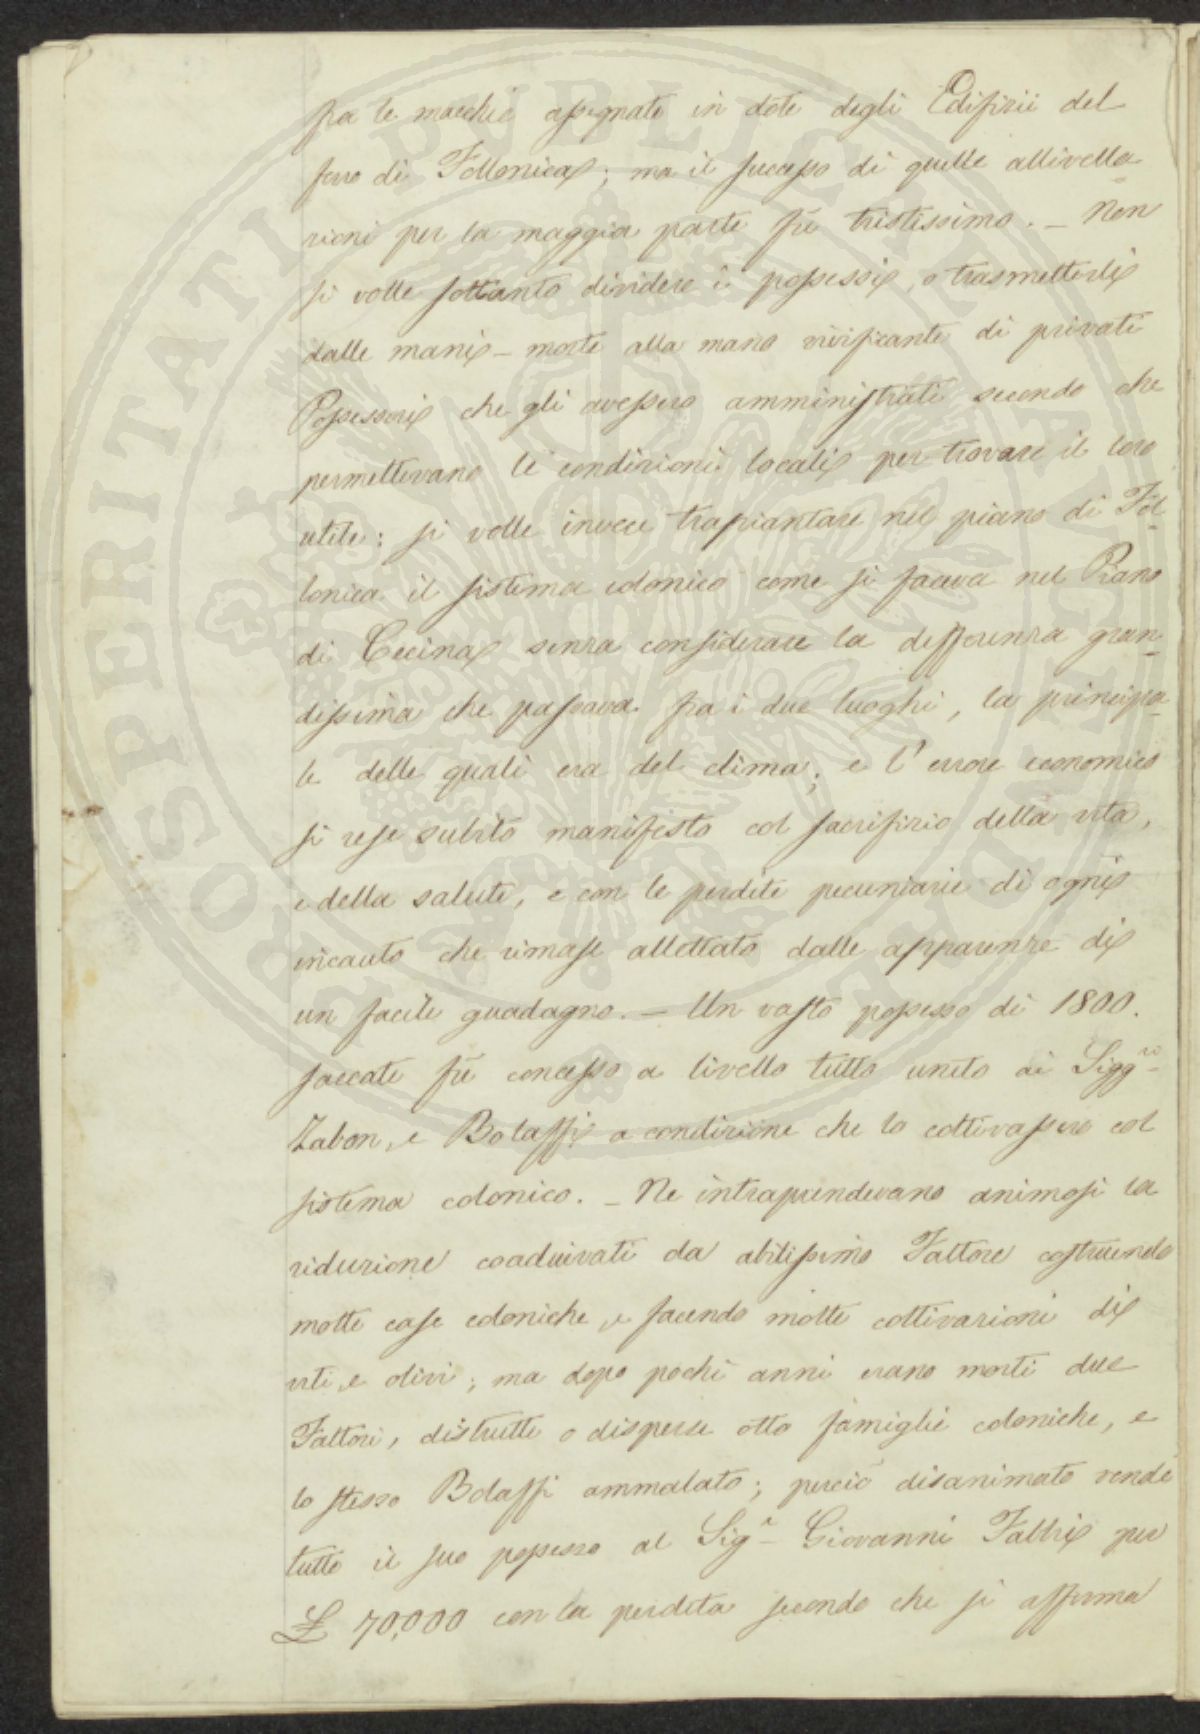 fra le macchie assegnate in dote degli Edifizii del
ferro di Follonica; ma il successo di quelle allivella-
zioni per la maggior parte fù tristissimo. – Non
si volle soltanto dividere i possessi, o trasmetterli
dalle mani-morte alla mano vivificante di privati
Possessori che gli avessero amministrati secondo che
permettevano le condizioni locali per trovare il loro
utile; si volle invece trapiantare nel piano di Fol-
lonica il sistema colonico come si faceva nel Piano
di Cecina senza considerare la differenza gran-
dissima che passava fra i due luoghi, la principa-
le delle quali era del clima; e l'errore economico
si rese subito manifesto col sacrifizio della vita,
e della salute, e con le perdite pecuniarie di ogni
incauto che rimase allettato dalle apparenze di
un facile guadagno. – Un vasto possesso di 1800.
saccate fù concesso a livello tutto unito ai Sigg.ri
Zabon, e Bolaffi a condizione che lo coltivassero col
sistema colonico. – Ne intraprendevano animosi la
riduzione coadiuvati da abilissimo Fattore costruendo
molte case coloniche, e facendo molte coltivazioni di
viti, e olivi; ma dopo pochi anni erano morti due
Fattori, distrutte o disperse otto famiglie coloniche, e
lo stesso Bolaffi ammalato; perciò disanimato vendè
tutto il suo possesso al Sig.r Giovanni Fabbri per
£ 70,000 con la perdita secondo che si afferma
PROSPERITATI PUBLICAE AUGENDAE